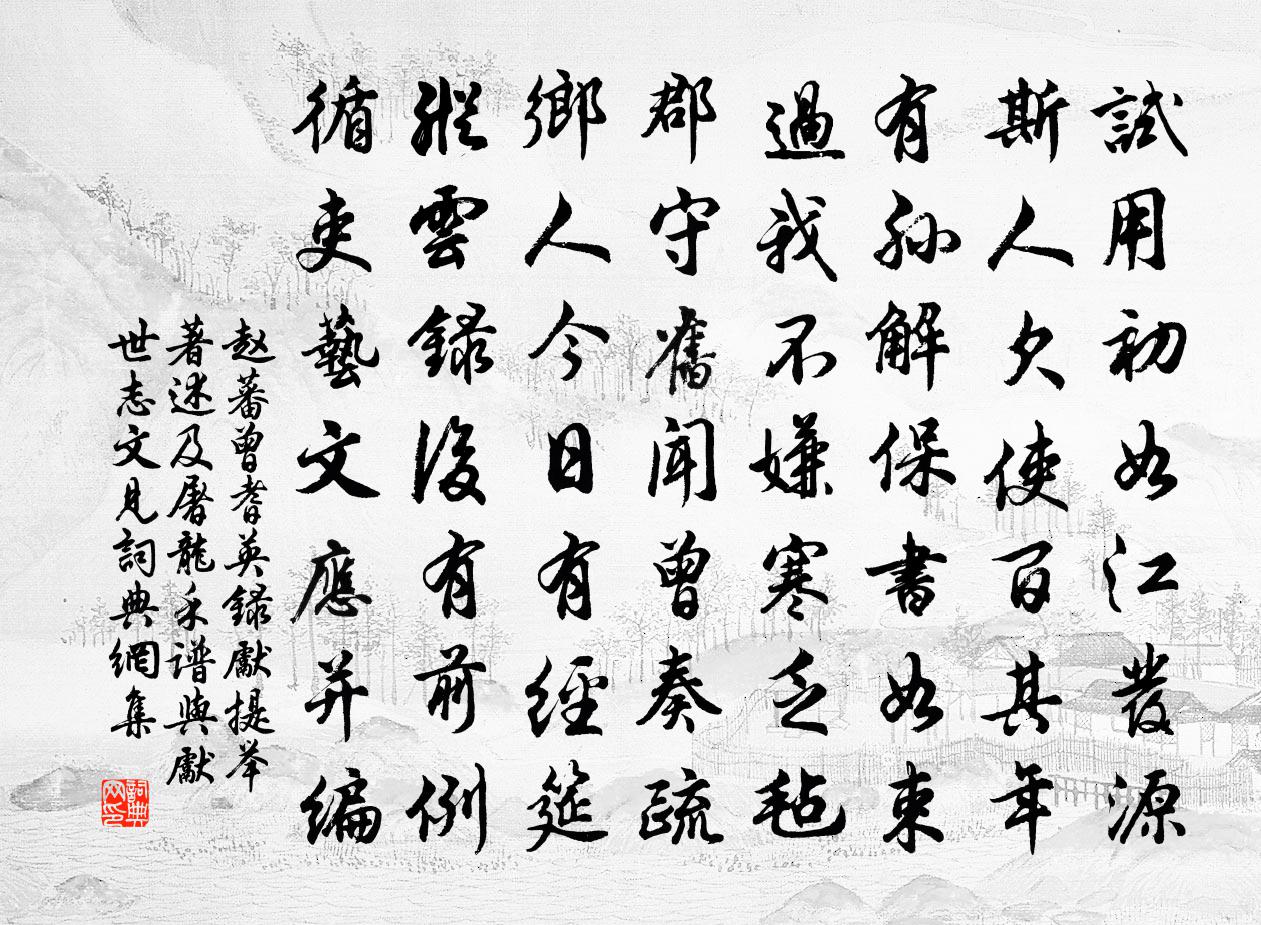 試用初如江發源
斯人欠使百其年
有孫解保書如束
過我不嫌寒乏氈
郡守舊聞曾奏疏
鄉人今日有經筵
縱雲錄後有前例
循吏藝文應并編
赵蕃曾耆英錄獻提举
著述及屠龍禾譜與獻
世志文見詞典網集
詞典
网印